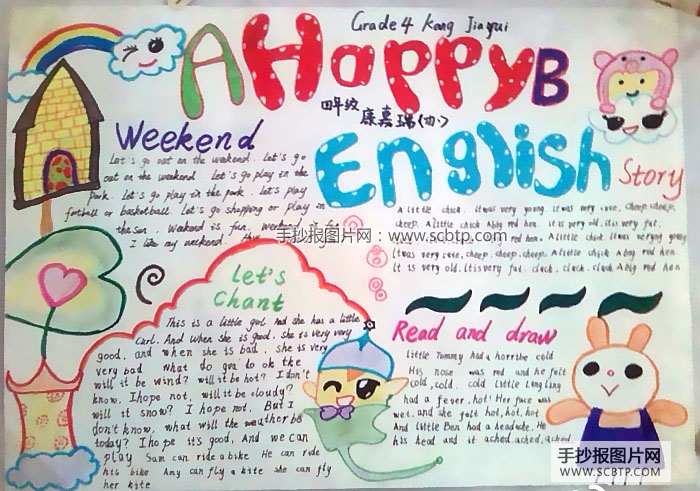 Grade 4 Kang Jiarui
A Happy B
四年级
康嘉瑞(四1)
English
Weekend
Let's go out on the weekend. Let's go
out on the weekend. Let's go play in the
park. Let's go play in the park. Let's play
football or basketball. Let's go shopping or play in
the sun. Weekend is fun.
I like my weekend.
Story
A little chick. It was very young. It was very cute, cheep, cheep,
cheep. A little chick A big red hen. it is very old. it is very fat.
red hen. A little chick. It was very young
It was very cute, cheep, cheep, cheep. A little chick A big red hen
It is very old. It is very fat. cluck, cluck, cluck. A big red hen
手抄报图片网:www.scbtp.com
Let's
Chant
This is a little girl And she has a little
curl. And when she is good. she is very very
good, and when she is bad. she is very
very bad What do you to ok the
will it be wind? will it be hot? I don't
know. I hope not, will it be cloudy?
will it snow? I hope not. But I
don't know. what will the weather be
today? I hope it's good, And we can
play Sam can ride a bike He can ride
his bike Amy can fly a kite she can fly
her kite
Read and draw
Little Tommy had a horrible cold
His nose was red and he felt
cold, cold. cold Little Ling Ling
had a fever, hot! Her face was
wet, and she felt hot, hot, hot
And little Ben had a headache. He
his head and it ached, ached, ached
手抄报图片网
WWW.SCBTP.COM